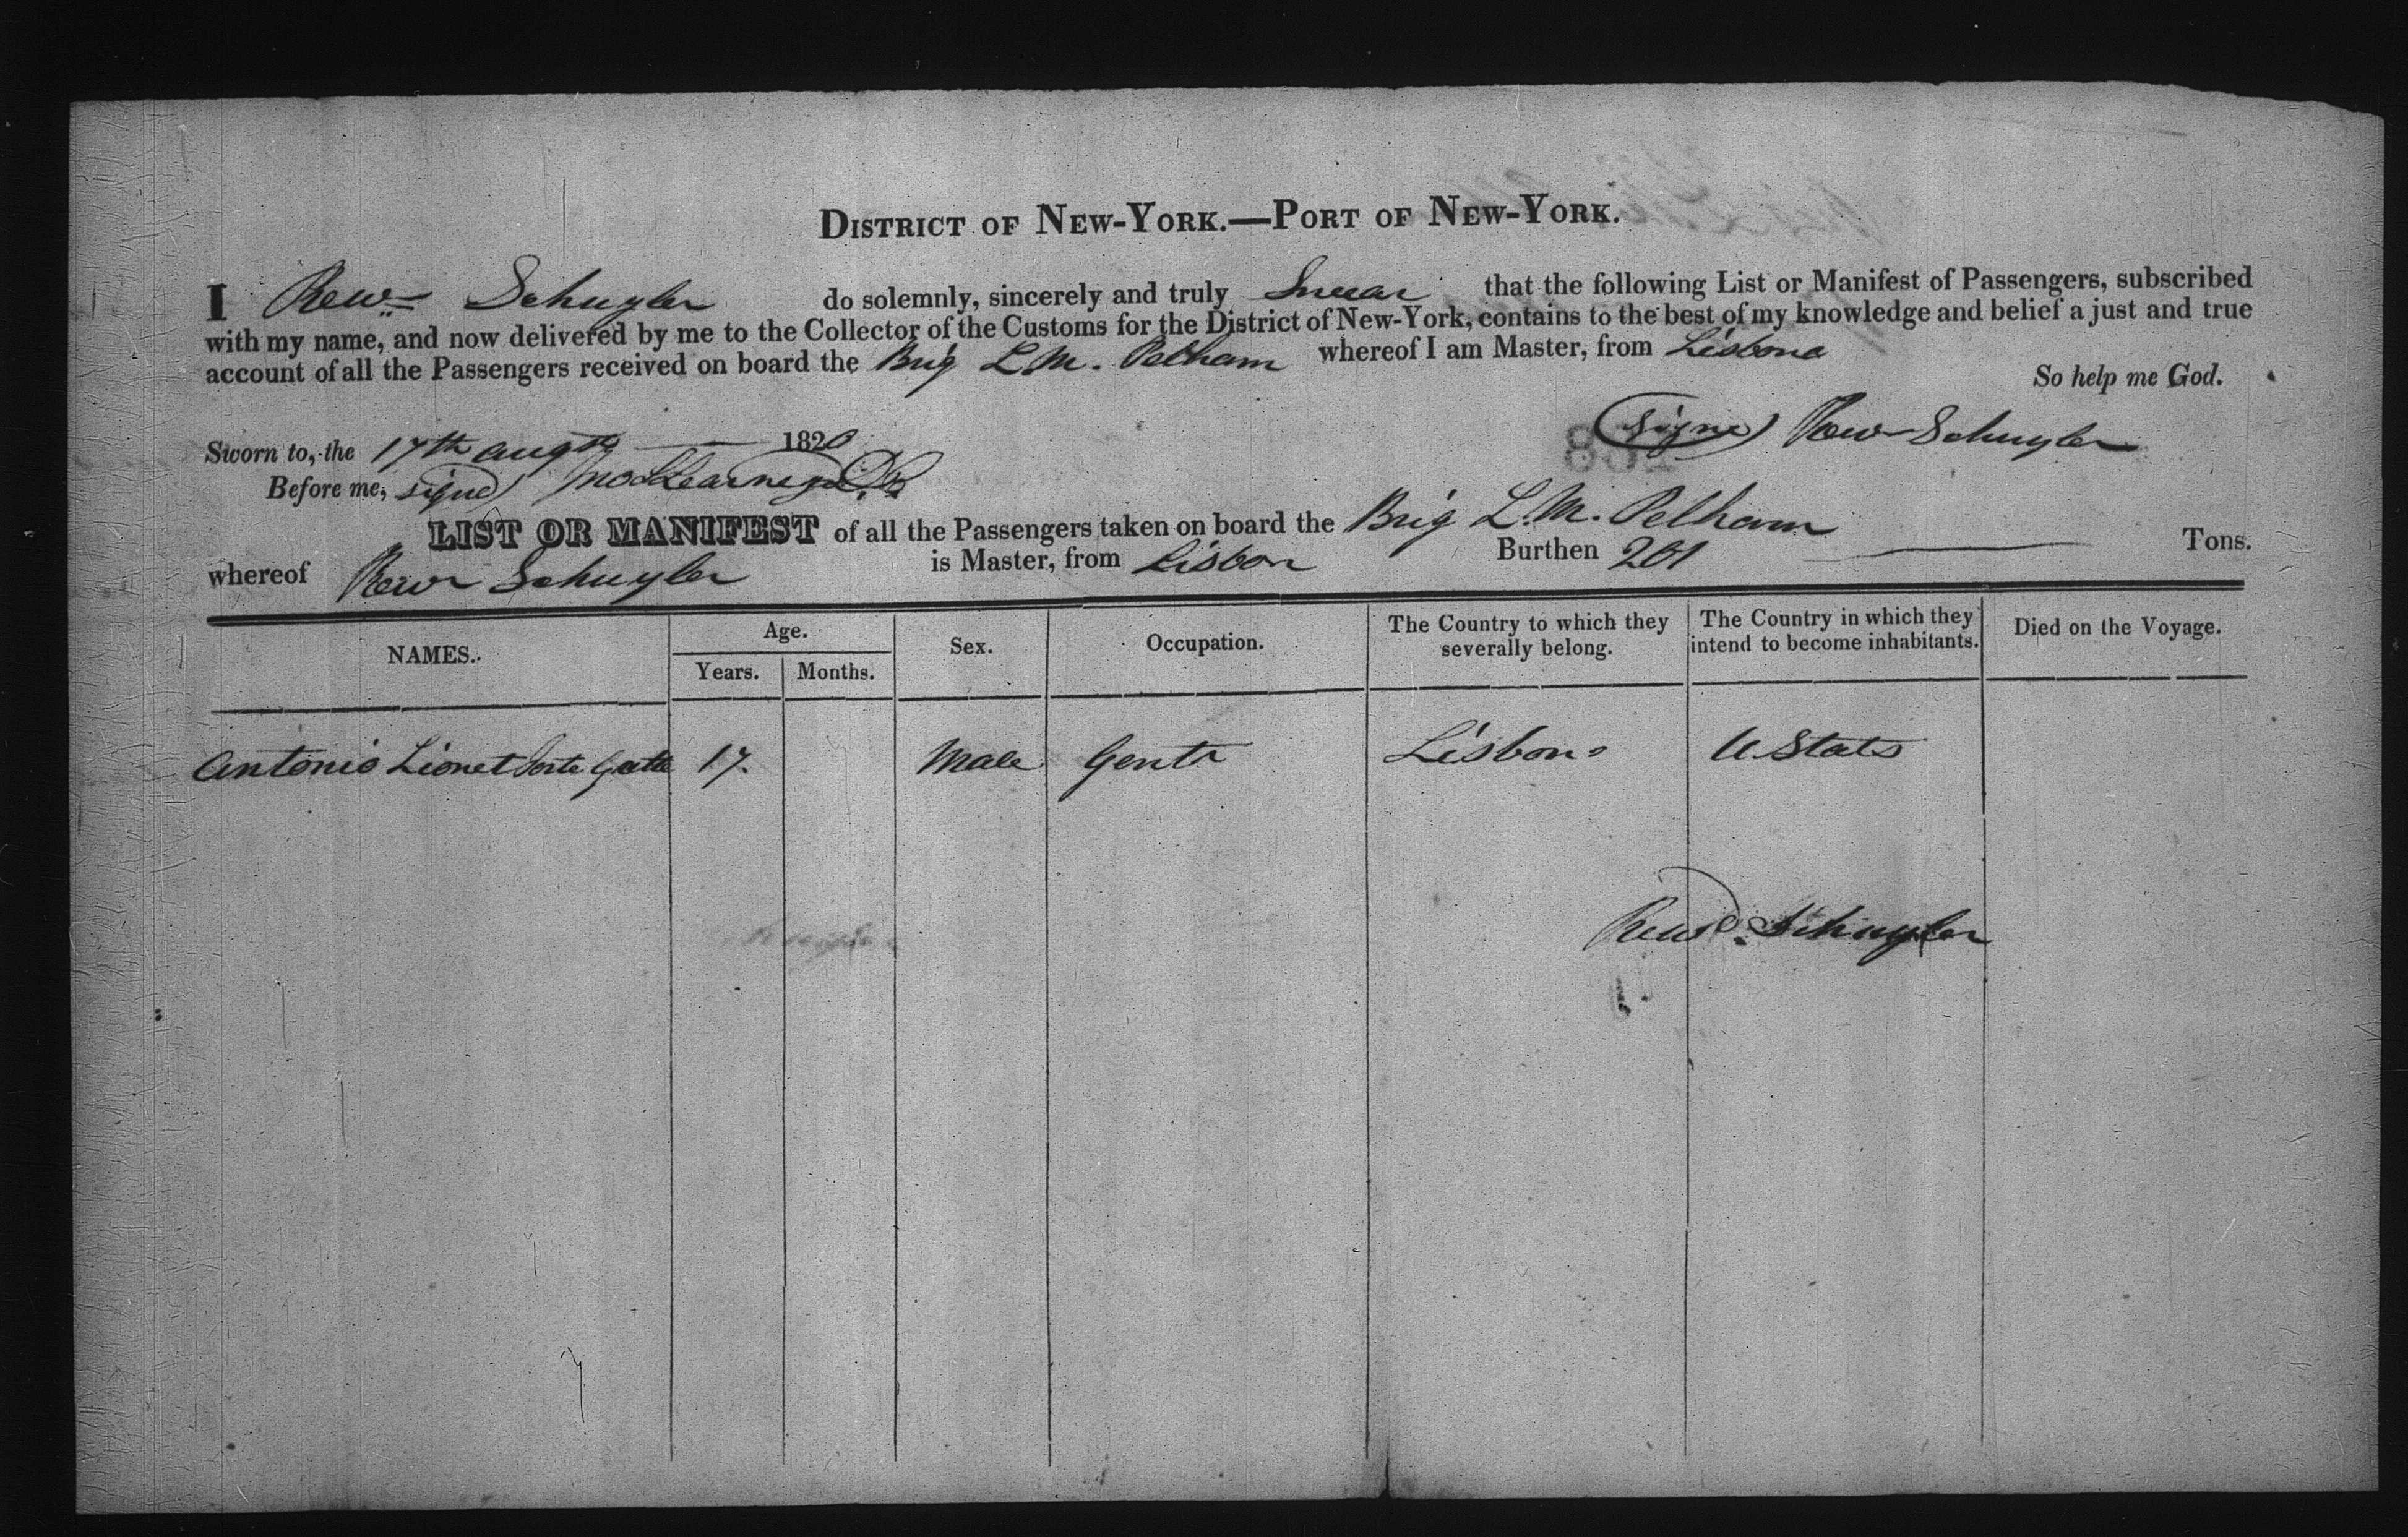 DISTRICT OF NEW-YORK.—PORT OF NEW-YORK.
I Rewn Schuyler do solemnly, sincerely and truly Swear that the following List or Manifest of Passengers, subscribed
with my name, and now delivered by me to the Collector of the Customs for the District of New-York, contains to the best of my knowledge and belief a just and true
account of all the Passengers received on board the Brig L.M. Pelham whereof I am Master, from Lisbone
So help me God.
Sworn to, the 17th augt 1820
(signe) Schuyler
Before me, signd)
LIST OR MANIFEST of all the Passengers taken on board the Brig L.M. Pelham
whereof Rewn Schuyler is Master, from Lisbon Burthen 201 Tons.
NAMES. Age. Years. Months. Sex. Occupation. The Country to which they severally belong. The Country in which they intend to become inhabitants. Died on the Voyage.
Antonio Lionet 17. Male Gentn Lisbon U States
Schuyler